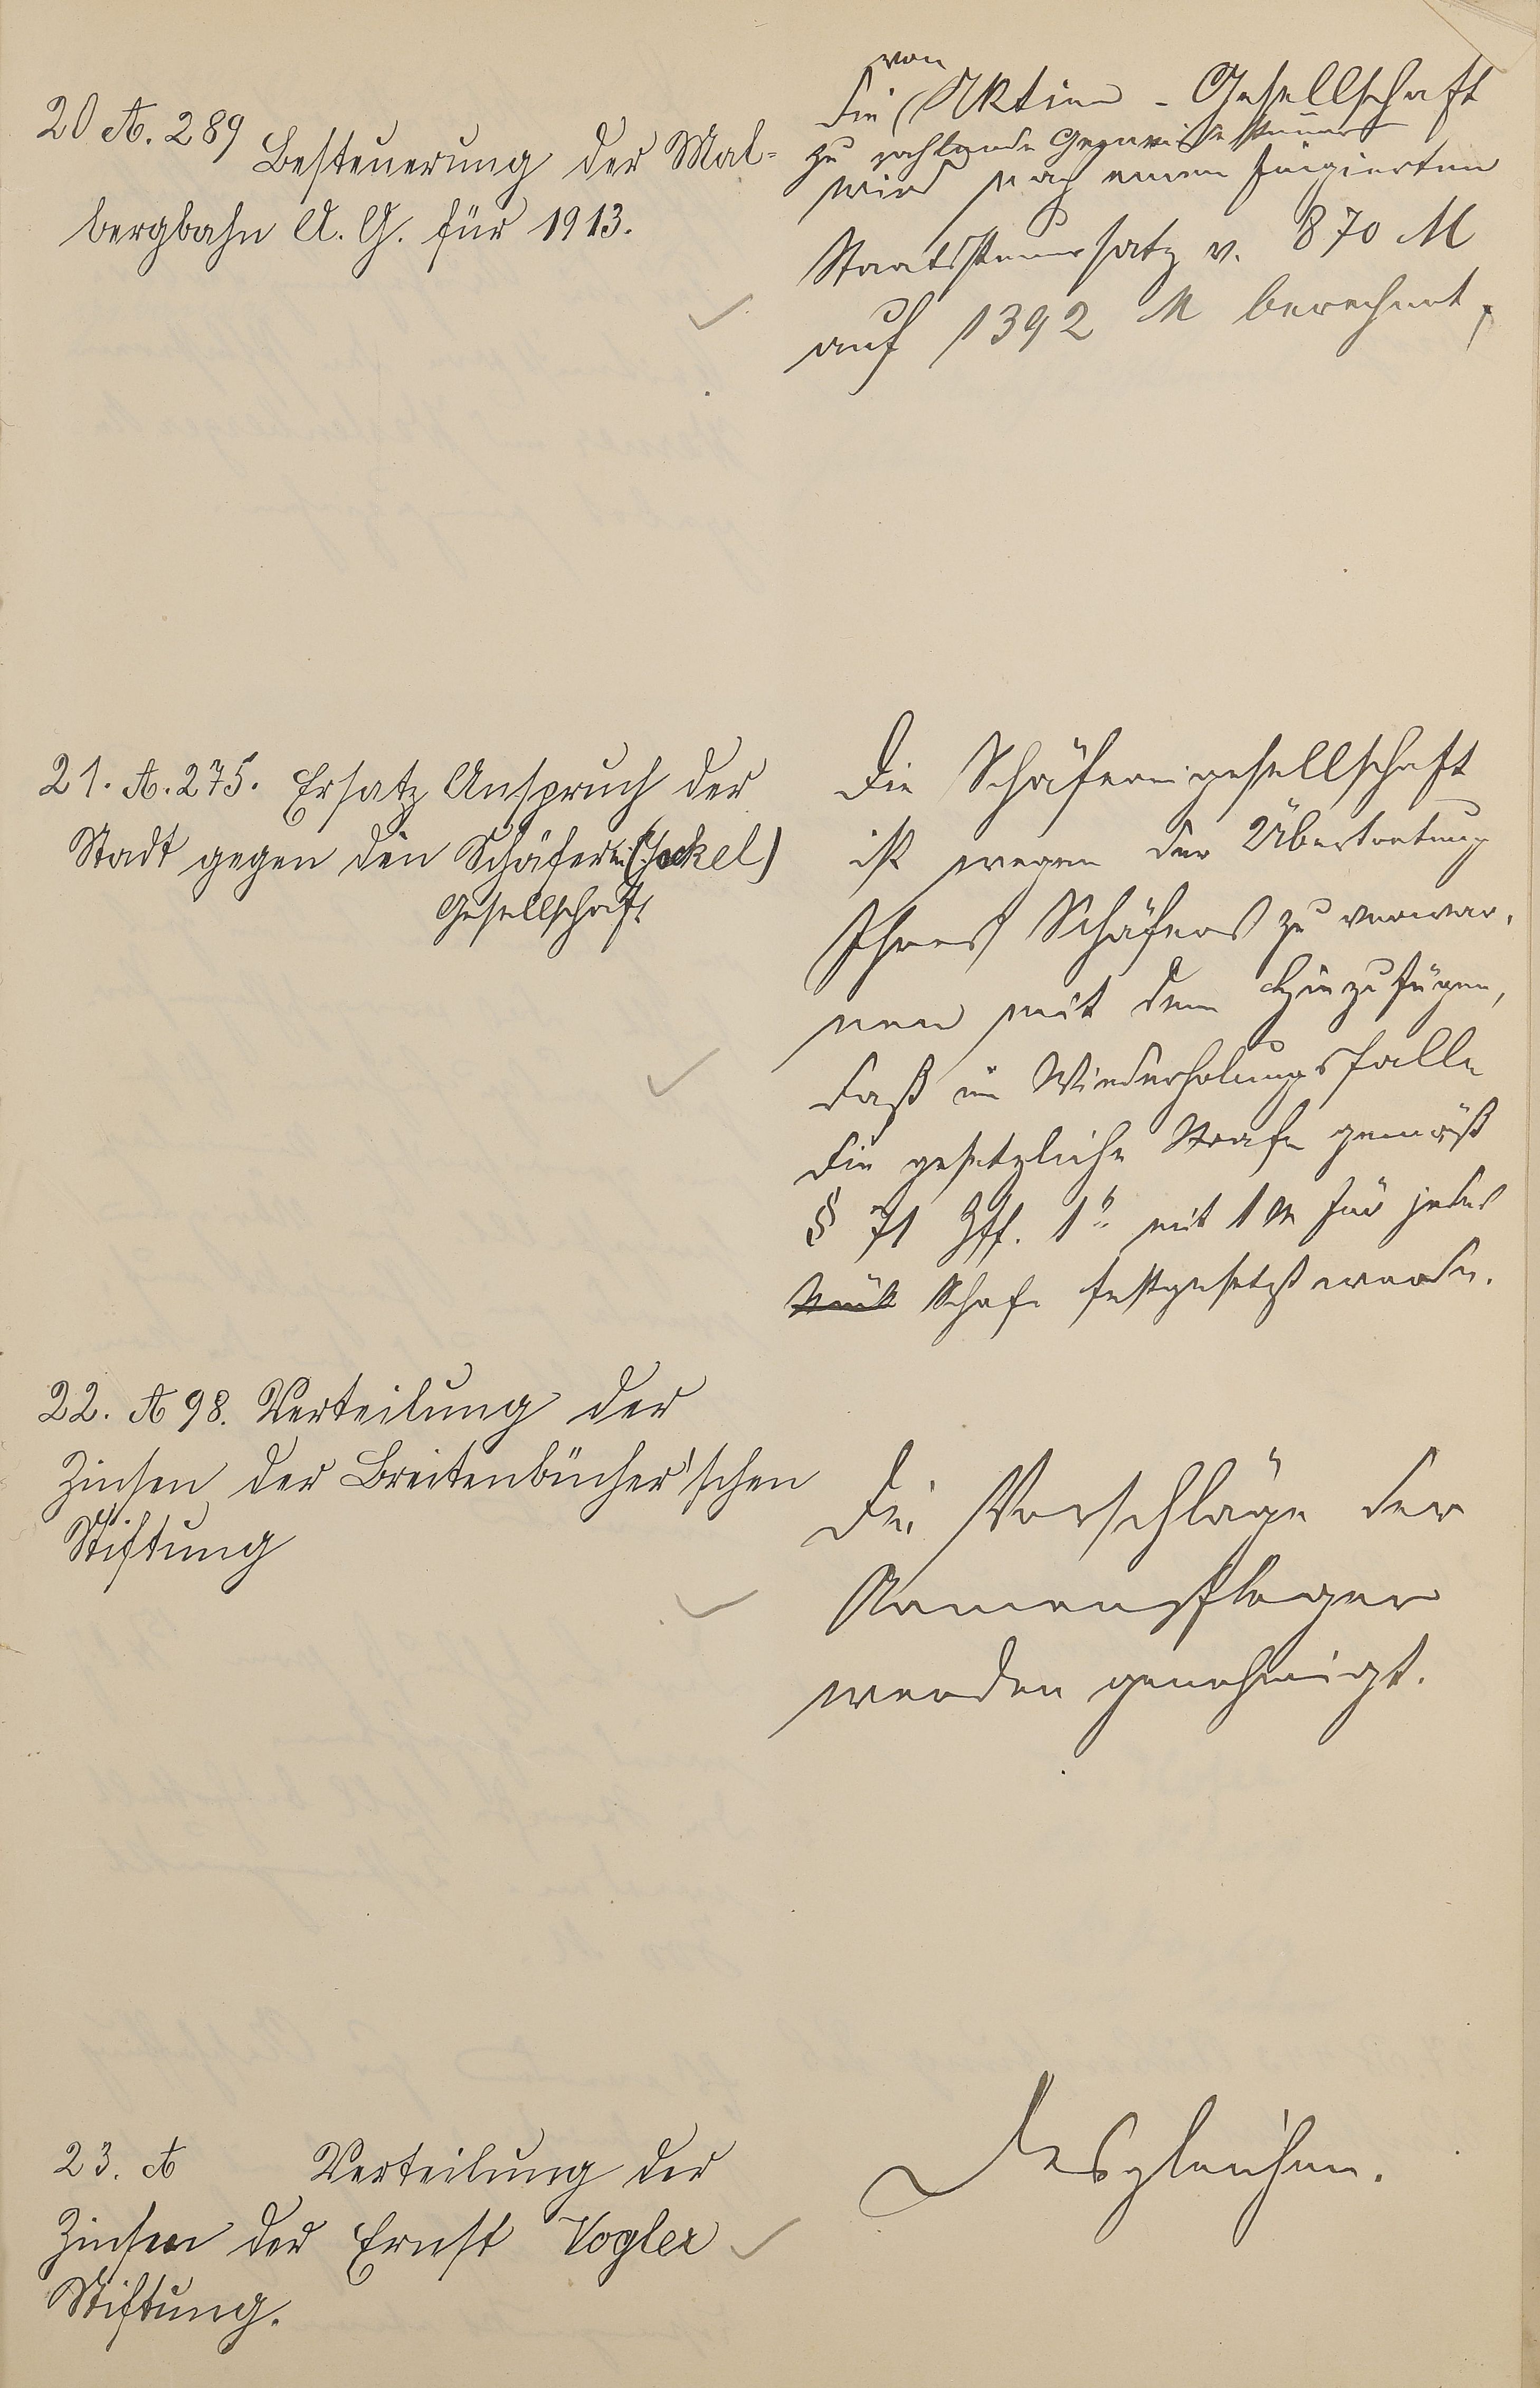 20 A. 289 Besteuerung der Mal=
bergbahn A. G. für 1913.
von
die Aktien - Gesellschaft
zu zahlende Gewerbesteuer
wird nach einem fingierten
Staatssteuersatz v. 870 M
auf 1392 M berechnet,
21. A. 275. Ersatz Anspruch der
Stadt gegen den Schäferei (Jeckel)
Gesellschaft
Die Schäfereigesellschaft
ist wegen der Übertretung
Ihres Schäfers zu verwar-
nen mit dem Hinzufügen,
daß im Wiederholungsfalle
die gesetzliche Strafe gemäß
§ 71 Zff. 1b mit 1 M für jedes
Stück Schafe festgesetzt werde.
22. A 98. Verteilung der
Zinsen der Breitenbücher'schen
Stiftung
Die Vorschläge der
Armenpfleger
werden genehmigt.
23. A Verteilung der
Zinsen der Ernst Vogler
Stiftung.
Desgleichen.